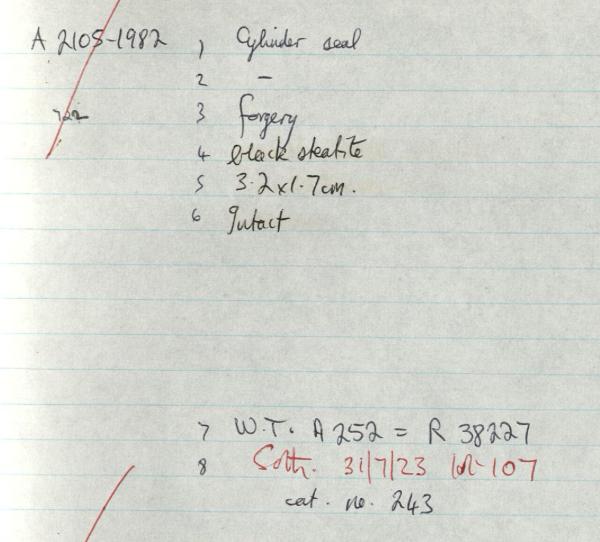 A 2105-1982 1 Cylinder seal
2 –
3 forgery
4 black steatite
5 3.2x1.7cm.
6 Intact
7 W.T. A 252 = R 38227
8 Soth. 31/7/23 lot 107
cat. no. 243